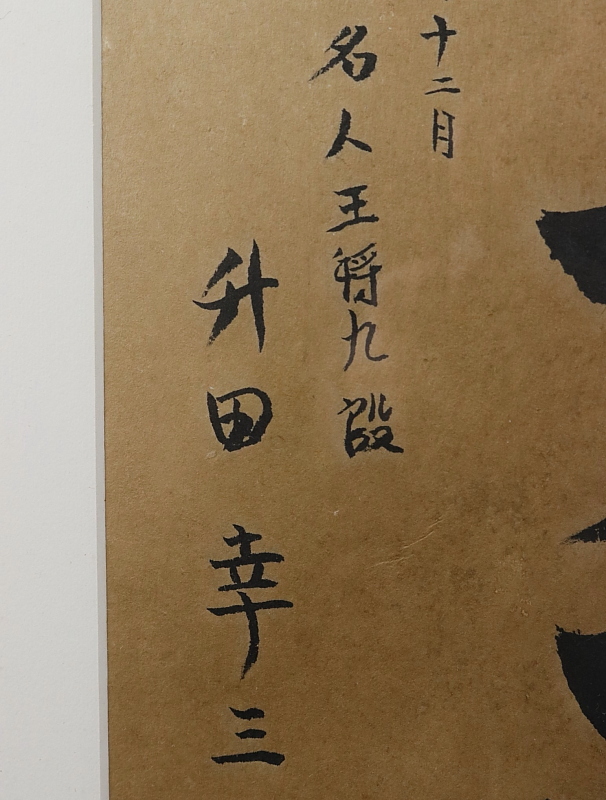 十二月
名人王将九段
升田幸三